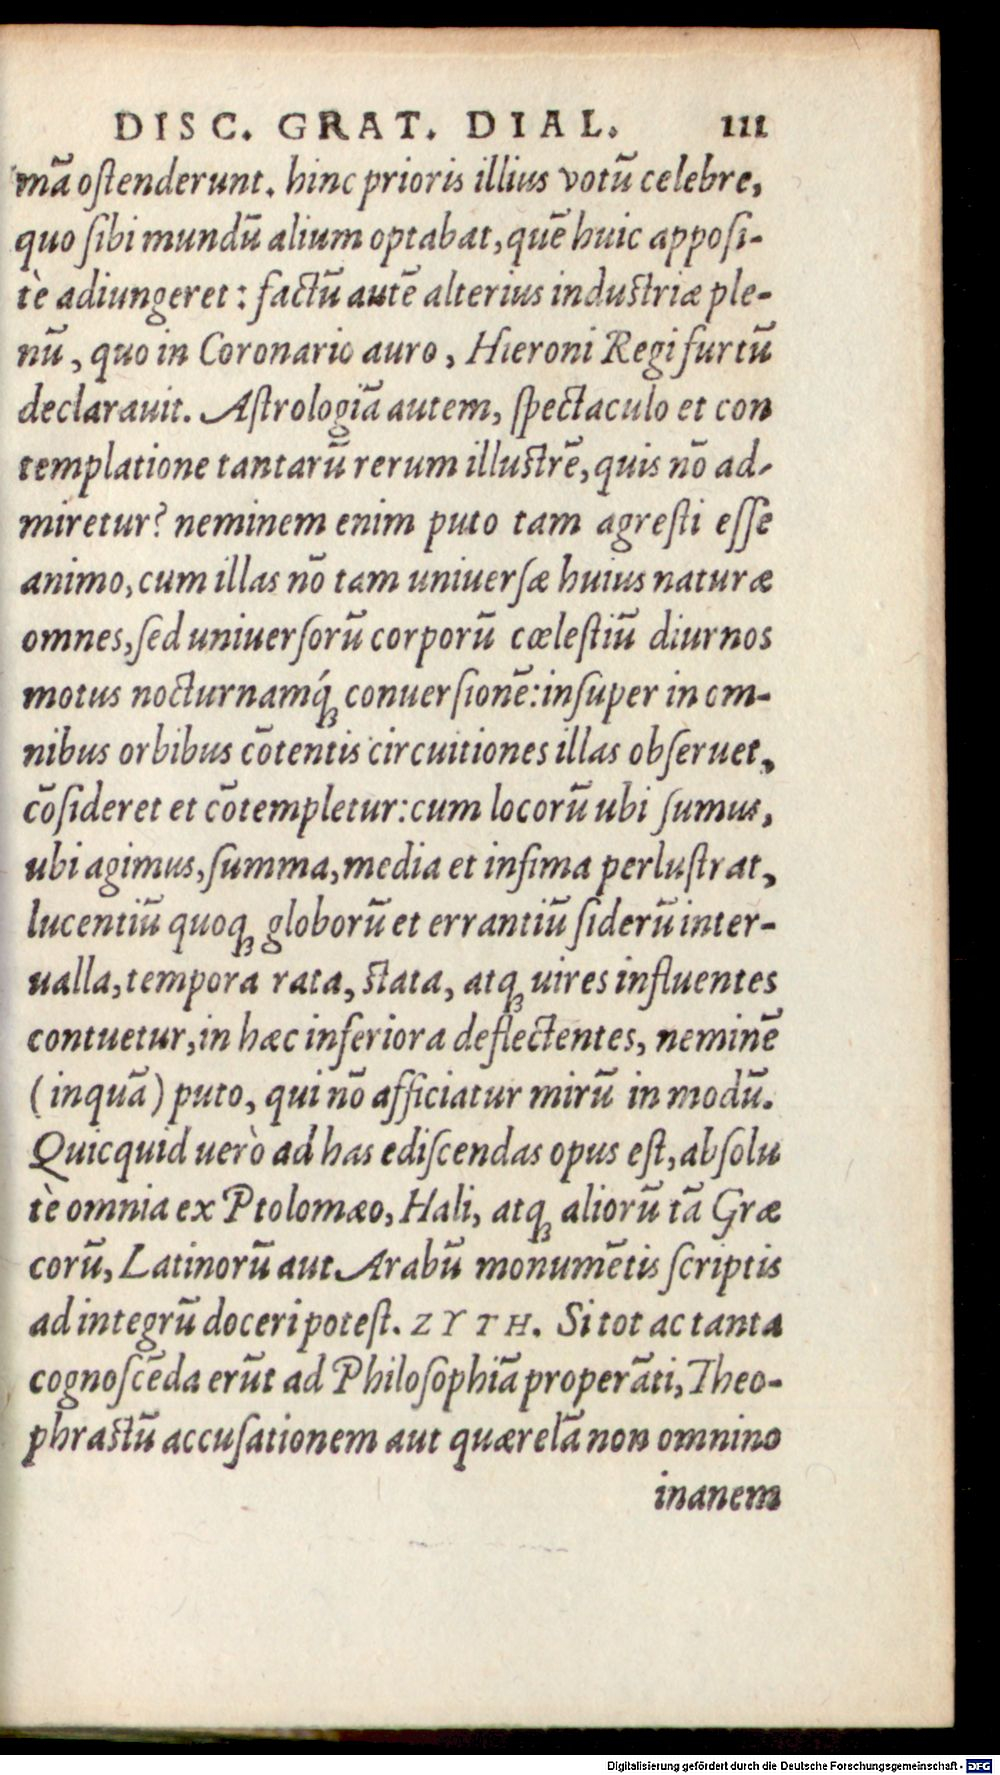 DISC. GRAT. DIAL. 111
mā ostenderunt. hinc prioris illius votū celebre,
quo sibi mundū alium optabat, quē huic apposi-
tè adiungeret: factū autē alterius industriæ ple-
nū, quo in Coronario auro, Hieroni Regi furtū
declarauit. Astrologiā autem, spectaculo et con
templatione tantarū rerum illustrē, quis nō ad-
miretur? neminem enim puto tam agresti esse
animo, cum illas nō tam uniuersæ huius naturæ
omnes, sed uniuersorū corporū cœlestiū diurnos
motus nocturnamq́ꝫ conuersionē: insuper in om-
nibus orbibus cōtentis circuitiones illas obseruet,
cōsideret et cōtempletur: cum locorū ubi sumus,
ubi agimus, summa, media et infima perlustrat,
lucentiū quoqꝫ globorū et errantiū siderū inter-
ualla, tempora rata, stata, atqꝫ uires influentes
contuetur, in hæc inferiora deflectentes, neminē
(inquā) puto, qui nō afficiatur mirū in modū.
Quicquid uerò ad has ediscendas opus est, absolu
tè omnia ex Ptolomæo, Hali, atqꝫ aliorū tā Græ
corū, Latinorū aut Arabū monumētis scriptis
ad integrū doceri potest. ZYTH. Si tot ac tanta
cognoscēda erūt ad Philosophiā properāti, Theo-
phrastū accusationem aut quærelā non omnino
inanem
Digitalisierung gefördert durch die Deutsche Forschungsgemeinschaft - DFG